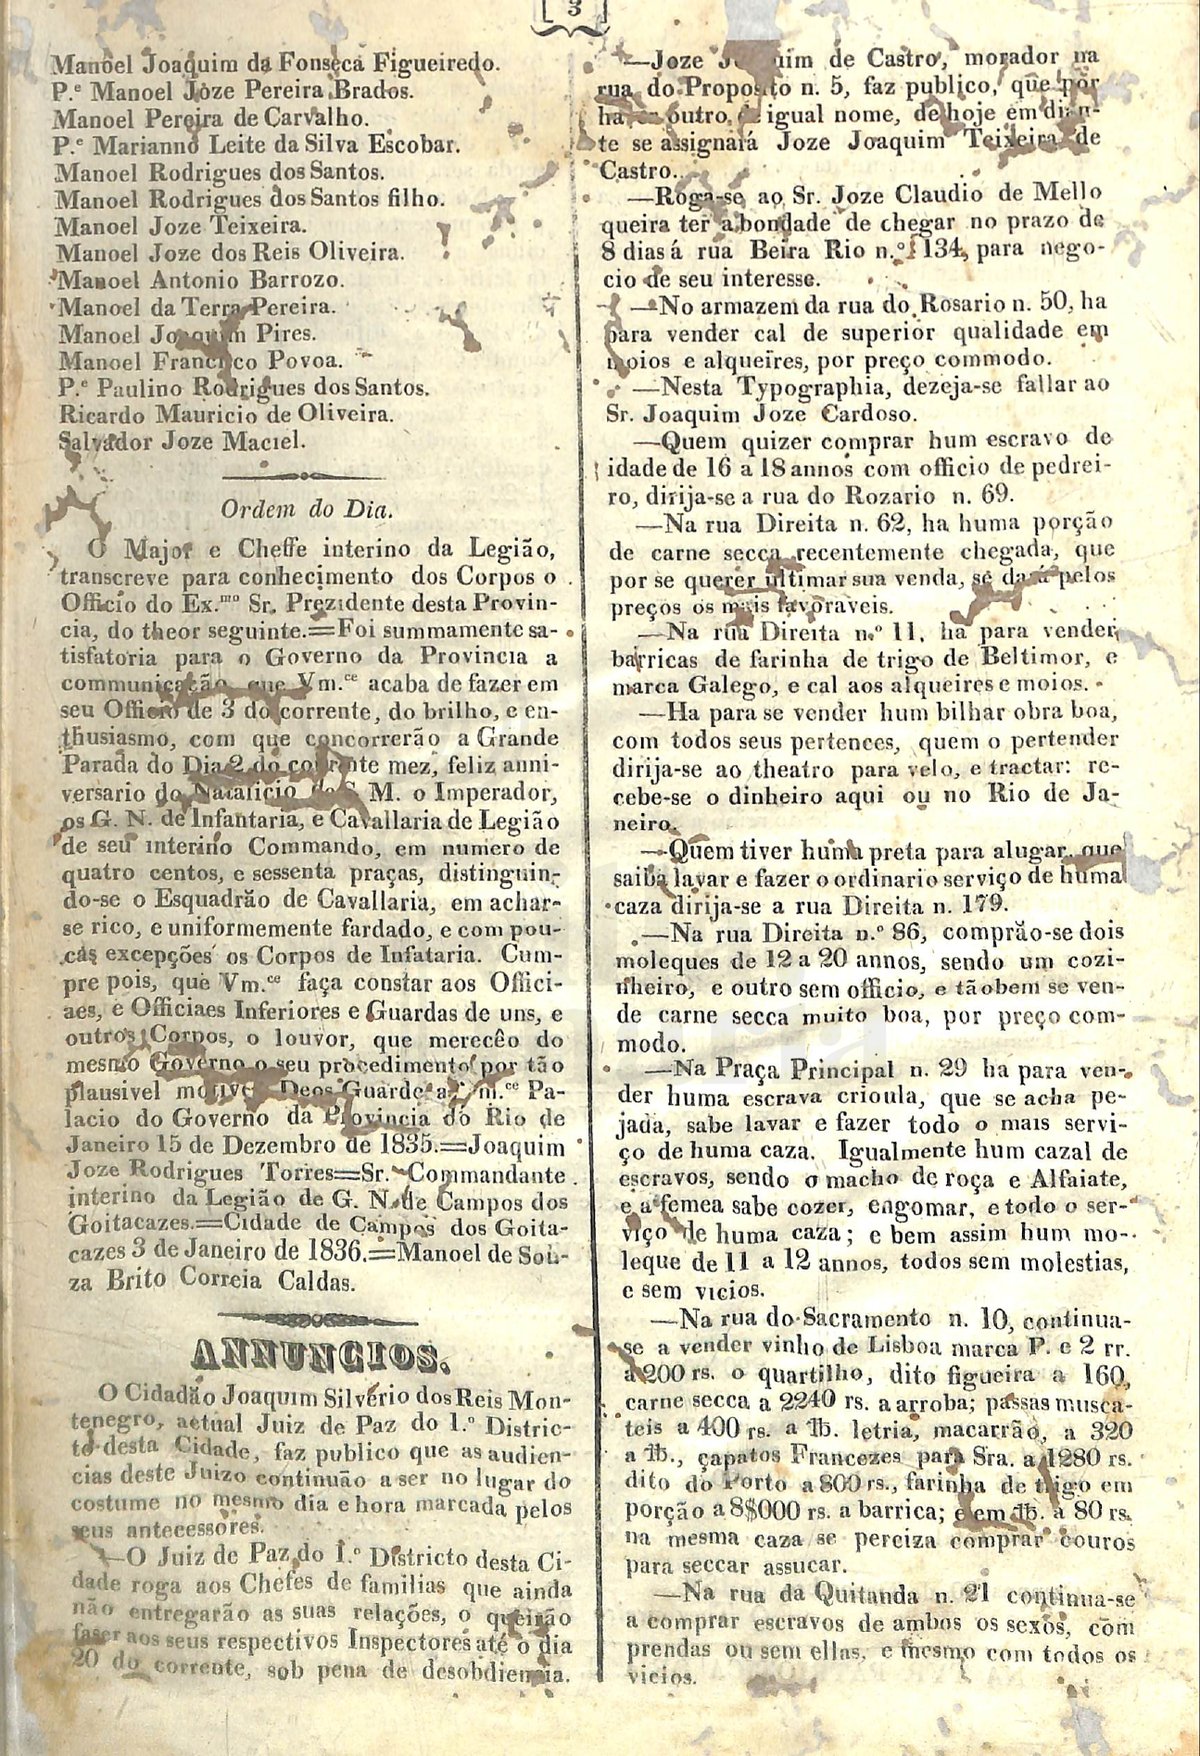 3
Manoel Joaquim da Fonseca Figueiredo.
P.e Manoel Joze Pereira Brados.
Manoel Pereira de Carvalho.
P.e Marianno Leite da Silva Escobar.
Manoel Rodrigues dos Santos.
Manoel Rodrigues dos Santos filho.
Manoel Joze Teixeira.
Manoel Joze dos Reis Oliveira.
Manoel Antonio Barrozo.
Manoel da Terra Pereira.
Manoel Joaquim Pires.
Manoel Francisco Povoa.
P.e Paulino Rodrigues dos Santos.
Ricardo Mauricio de Oliveira.
Salvador Joze Maciel.
Ordem do Dia.
O Major e Cheffe interino da Legião,
transcreve para conhecimento dos Corpos o
Officio do Ex.mo Sr. Prezidente desta Provin-
cia, do theor seguinte.=Foi summamente sa-
tisfatoria para o Governo da Provincia a
communicação que Vm.ce acaba de fazer em
seu Officio de 3 do corrente, do brilho, e en-
thusiasmo, com que concorrerão a Grande
Parada do Dia 2 do corrente mez, feliz anni-
versario do Natalicio de S. M. o Imperador,
os G. N. de Infantaria, e Cavallaria de Legião
de seu interino Commando, em numero de
quatro centos, e sessenta praças, distinguin-
do-se o Esquadrão de Cavallaria, em achar-
se rico, e uniformemente fardado, e com pou-
cas excepções os Corpos de Infataria. Cum-
pre pois, que Vm.ce faça constar aos Offici-
aes, e Officiaes Inferiores e Guardas de uns, e
outros Corpos, o louvor, que merecêo do
mesmo Governo o seu procedimento por tão
plausivel motivo Deos Guarde a Vm.ce Pa-
lacio do Governo da Provincia do Rio de
Janeiro 15 de Dezembro de 1835.=Joaquim
Joze Rodrigues Torres=Sr. Commandante
interino da Legião de G. N. de Campos dos
Goitacazes.=Cidade de Campos dos Goita-
cazes 3 de Janeiro de 1836.=Manoel de Sou-
za Brito Correia Caldas.
ANNUNCIOS.
O Cidadão Joaquim Silverio dos Reis Mon-
tenegro, actual Juiz de Paz do 1.º Distric-
to desta Cidade, faz publico que as audien-
cias deste Juizo continuão a ser no lugar do
costume no mesmo dia e hora marcada pelos
seus antecessores.
—O Juiz de Paz do 1.º Districto desta Ci-
dade roga aos Chefes de familias que ainda
não entregarão as suas relações, o queirão
faser aos seus respectivos Inspectores até o dia
20 do corrente, sob pena de desobdiencia.
—Joze Joaquim de Castro, morador na
rua do Proposito n. 5, faz publico, que por
haver outro de igual nome, de hoje em dian-
te se assignará Joze Joaquim Teixeira de
Castro.
—Roga-se ao Sr. Joze Claudio de Mello
queira ter a bondade de chegar no prazo de
8 dias á rua Beira Rio n.º 134, para nego-
cio de seu interesse.
—No armazem da rua do Rosario n. 50, ha
para vender cal de superior qualidade em
moios e alqueires, por preço commodo.
—Nesta Typographia, dezeja-se fallar ao
Sr. Joaquim Joze Cardoso.
—Quem quizer comprar hum escravo de
idade de 16 a 18 annos com officio de pedrei-
ro, dirija-se a rua do Rozario n. 69.
—Na rua Direita n. 62, ha huma porção
de carne secca recentemente chegada, que
por se querer ultimar sua venda, se dará pelos
preços os mais favoraveis.
—Na rua Direita n.º 11, ha para vender
barricas de farinha de trigo de Beltimor, e
marca Galego, e cal aos alqueires e moios.
—Ha para se vender hum bilhar obra boa,
com todos seus pertences, quem o pertender
dirija-se ao theatro para velo, e tractar: re-
cebe-se o dinheiro aqui ou no Rio de Ja-
neiro.
—Quem tiver huma preta para alugar, que
saiba lavar e fazer o ordinario serviço de huma
caza dirija-se a rua Direita n. 179.
—Na rua Direita n.º 86, comprão-se dois
moleques de 12 a 20 annos, sendo um cozi-
nheiro, e outro sem officio, e tãobem se ven-
de carne secca muito boa, por preço com-
modo.
—Na Praça Principal n. 29 ha para ven-
der huma escrava crioula, que se acha pe-
jada, sabe lavar e fazer todo o mais servi-
ço de huma caza. Igualmente hum cazal de
escravos, sendo o macho de roça e Alfaiate,
e a femea sabe cozer, engomar, e todo o ser-
viço de huma caza; e bem assim hum mo-
leque de 11 a 12 annos, todos sem molestias,
e sem vicios.
—Na rua do Sacramento n. 10, continua-
se a vender vinho de Lisboa marca P. e 2 rr.
a 200 rs. o quartilho, dito figueira a 160,
carne secca a 2240 rs. a arroba; passas musca-
teis a 400 rs. a ℔. letria, macarrão, a 320
a ℔., çapatos Francezes para Sra. a 1280 rs.
dito do Porto a 800 rs., farinha de trigo em
porção a 8$000 rs. a barrica; e em ℔. a 80 rs.
na mesma caza se perciza comprar couros
para seccar assucar.
—Na rua da Quitanda n. 21 continua-se
a comprar escravos de ambos os sexos, com
prendas ou sem ellas, e mesmo com todos os
vicios.